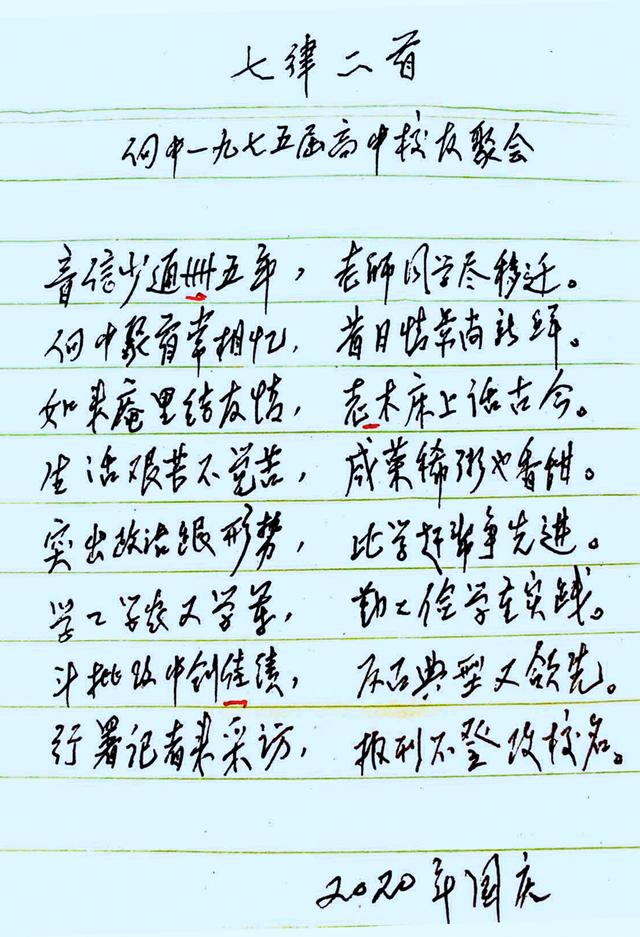 七律二首
何中一九七五届高中校友聚会
音信少通卌五年，老师同学尽移迁。
何中聚首常相忆，昔日情景尚新鲜。
如来庵里结友情，老木床上话古今。
生活艰苦不觉苦，咸菜稀粥也香甜。
突出政治跟形势，比学赶帮争先进。
学工学农又学军，勤工俭学重实践。
斗批改中创佳绩，反击典型又领先。
行署记者来采访，报刊不登改校名。
2020年国庆